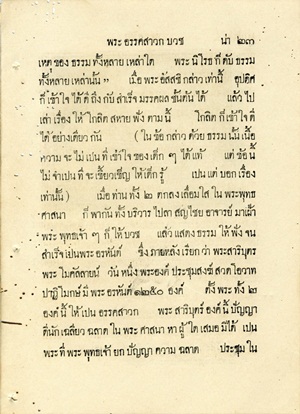 พระ อรรคสาวก บวช น่า ๒๓
เหตุ ของ ธรรม ทั้งหลาย เหล่าใด พระ นิโรธ ก็ ดับ ธรรม
ทั้งหลาย เหล่านั้น ” เมื่อ พระ อัสสชิ กล่าว เท่านี้ อุปติศ
ก็ เข้าใจ ได้ ดี ถึง กับ สำเร็จ มรรคผล ชั้นต้น ได้ แล้ว ไป
เล่า เรื่อง ให้ โกลิต สหาย ฟัง ตาม นี้ โกลิต ก็ เข้าใจ ดี
ได้ อย่างเดียว กัน ( ใน ข้อ กล่าว ด้วย ธรรม นั้น เนื้อ
ความ จะ ไม่ เปน ที่ เข้าใจ ของ เด็ก ๆ ได้ แท้ แต่ ข้อ นั้น
ไม่ จำเปน ที่ จะ เชี้ยวเข็ญ ให้ เด็ก รู้ เปน แต่ บอก เรื่อง
เท่านั้น ) เมื่อ ท่าน ทั้ง ๒ ตกลง เลื่อมใส ใน พระพุทธ
ศาสนา ก็ พากัน ทั้ง บริวาร ไป ลา สญไชย อาจารย์ มา เฝ้า
พระ พุทธเจ้า ๆ ก็ ให้ บวช แล้ว แสดง ธรรม ให้ ฟัง จน
สำเร็จ เปน พระ อรหันต์ ซึ่ง ภายหลัง เรียก ว่า พระสาริบุตร
พระ โมคัลลายน์ วัน หนึ่ง พระองค์ ประชุมสงฆ์ สวด โอวาท
ปาฏิโมกษ์ มี พระ อรหันต์ ๑๒๕๐ องค์ ตั้ง พระ ทั้ง ๒
องค์ นี้ ให้ เปน อรรคสาวก พระ สาริบุตร์ องค์ นี้ ปัญญา
ดี นัก เฉลียว ฉลาด ใน พระ ศาสนา หา ผู้ ใด เสมอ มิได้ เปน
พระ ที่ พระ พุทธเจ้า ยก ปัญญา ความ ฉลาด ประชุม ใน